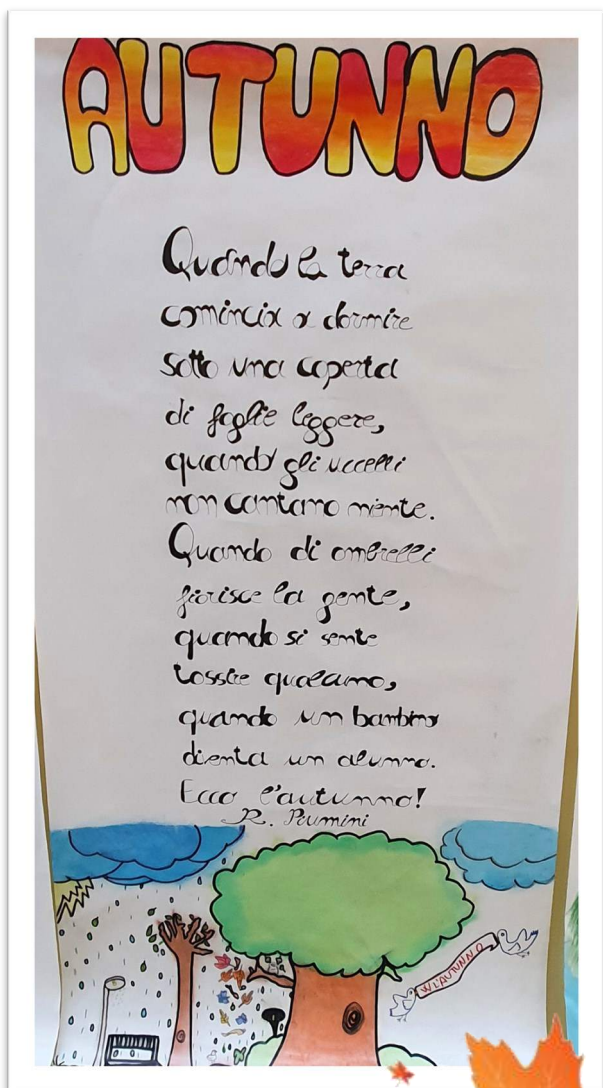 AUTUNNO
Quando la terra
comincia a dormire
sotto una coperta
di foglie leggere,
quando gli uccelli
non cantano niente.
Quando di ombrelli
fiorisce la gente,
quando si sente
tossire qualcuno,
quando un bambino
dienta un alunno.
Ecco l'autunno!
R. Piumini
W L'AUTUNNO